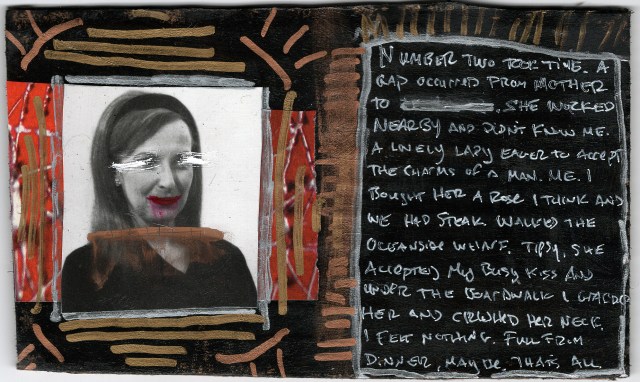 NUMBER TWO TOOK TIME. A
GAP OCCURRED FROM MOTHER
TO . SHE WORKED
NEARBY AND DIDN'T KNOW ME.
A LONELY LADY EAGER TO ACCEPT
THE CHARMS OF A MAN. ME. I
BOUGHT HER A ROSE I THINK AND
WE HAD STEAK. WALKED THE
OCEANSIDE WHARF. TIPSY, SHE
ACCEPTED MY BUSY KISS AND
UNDER THE BOARDWALK I GRABBED
HER AND CRUSHED HER NECK.
I FELT NOTHING. FULL FROM
DINNER, MAYBE. THAT'S ALL.